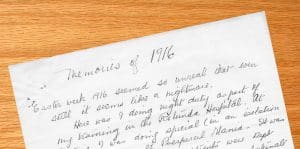 Memories of 1916
Easter week 1916 seemed so unreal that even
still it seems like a nightmare.
Here was I doing night duty as part of
my training in the Rotunda Hospital. At
I was doing special (in an isolation
of Puerperal Mania. It was
were kept